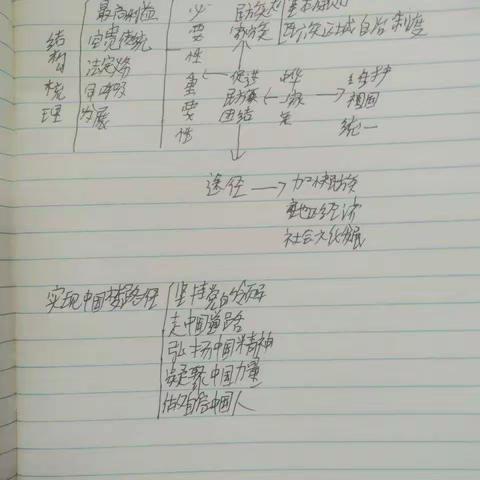 最高利益
宝贵传统
法定义务
发展
结构梳理
必要性
重要性
民族区域自治制度
促进民族团结
维护祖国统一
途径
加快民族
地区经济
社会文化发展
实现中国梦路径
坚持党的领导
走中国道路
弘扬中国精神
凝聚中国力量
做自信中国人